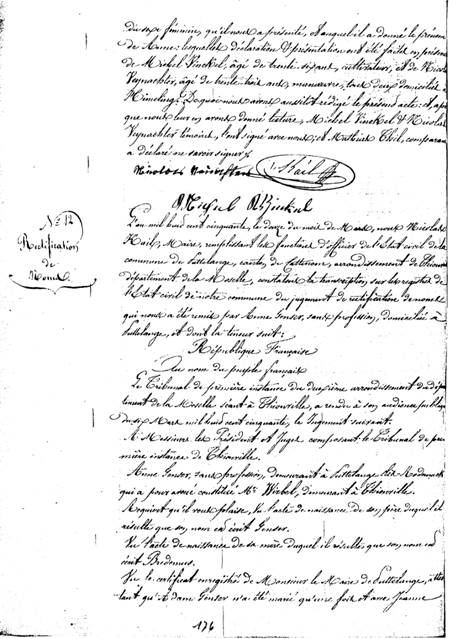 du sexe féminin, qu'il nous a présenté, et auquel il a donné le prénom
de Anne: lesquelles déclaration & présentation ont été faites en présence
de Michel Kinckel, âgé de trente six ans, cultivateur, et de Nicolas
Veynachter, âgé de trente huit ans, manœuvre, tous deux domiciliés à
Himeling. De quoi nous avons aussitôt rédigé le présent acte: et, après
que nous leur en avons donné lecture, Michel Kinckel & Nicolas
Veynachter témoins, l'ont signé avec nous, et Mathias Thiel, comparant
a déclaré ne savoir signer.
Nicolas
N° 12
Rectification
de
Noms
L'an mil huit cent cinquante, le douze du mois de Mars, nous Nicolas
Keil, Maire, remplissant les fonctions d'officier de l'Etat civil de la
commune de Puttelange, canton de Cattenom, arrondissement de Thionville
département de la Moselle, constatons la transcription, sur les registres de
l'Etat civil de notre commune du jugement de rectification de noms
qui nous a été remis par Anne Genser, sans profession, domiciliée à
Puttelange, et dont la teneur suit:
République Française
Au nom du peuple français
Le Tribunal de première instance du deuxième arrondissement du dépar
tement de la Moselle séant à Thionville, a rendu à son audience publique
du six Mars mil huit cent cinquante, le Jugement suivant.
A Messieurs les Président et Juges composant le Tribunal de pre
mière instance de Thionville.
Anne Genser, sans profession, demeurant à Puttelange lès Rodemack
qui a pour avoué constitué Me Wirbel, demeurant à Thionville.
Requiert qu'il vous plaise, Vu l'acte de naissance de son père duquel il
résulte que son nom est écrit Genser.
Vu l'acte de naissance de sa mère duquel il résulte que son nom est
écrit
Vu le certificat enregistré de Monsieur le Maire de Puttelange, attes
tant qu'Adam Genser n'a été marié qu'une fois et avec Jeanne
176